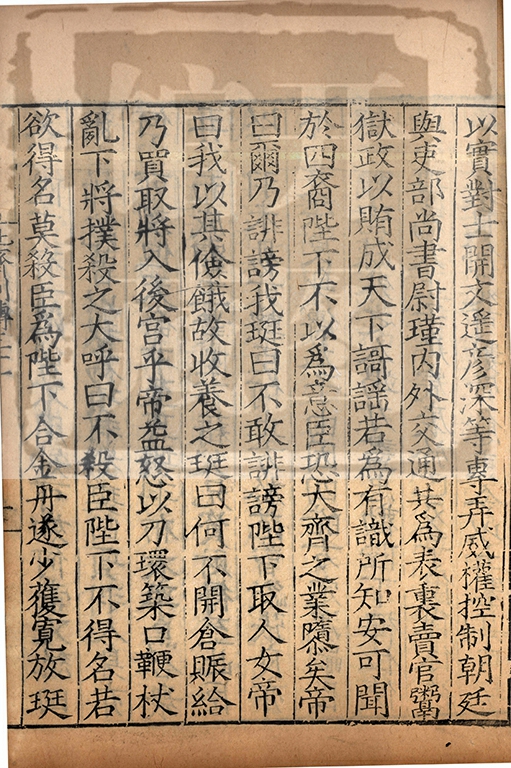 以實對士開文遥彦深等專弄威權控制朝廷
與吏部尚書尉瑾内外交通其為表裏賣官鬻
獄政以賄成天下謌謡若為有識所知安可聞
於四裔陛下不以為意臣恐大齊之業隳矣帝
曰爾乃誹謗我珽曰不敢誹謗陛下取人女帝
曰我以其儉餓故收養之珽曰何不開倉賑給
乃買取將入後宫乎帝益怒以刀環築口鞭杖
亂下將撲殺之大呼曰不殺臣陛下不得名若
欲得名莫殺臣為陛下合金丹遂少獲寛放珽